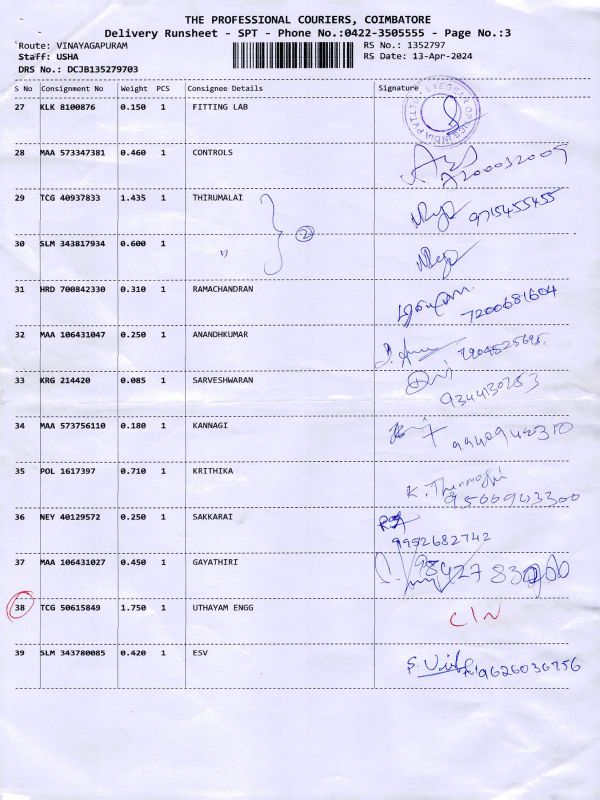 THE PROFESSIONAL COURIERS, COIMBATORE
Delivery Runsheet - SPT - Phone No.:0422-3505555 - Page No.:3
Route: VINAYAGAPURAM RS No.: 1352797
Staff: USHA RS Date: 13-Apr-2024
DRS No.: DCJB135279703
S No Consignment No Weight PCS Consignee Details Signature
27 KLK 8100876 0.150 1 FITTING LAB
28 MAA 573347381 0.460 1 CONTROLS
7200032009
29 TCG 40937833 1.435 1 THIRUMALAI 9715455455
2
30 SLM 343817934 0.600 1 "
31 HRD 700842330 0.310 1 RAMACHANDRAN
7200681604
32 MAA 106431047 0.250 1 ANANDHKUMAR
33 KRG 214420 0.085 1 SARVESHWARAN
9344130253
34 MAA 573756110 0.180 1 KANNAGI
35 POL 1617397 0.710 1 KRITHIKA
K.
9566943300
36 NEY 40129572 0.250 1 SAKKARAI
9952682742
37 MAA 106431027 0.450 1 GAYATHIRI
38 TCG 50615849 1.750 1 UTHAYAM ENGG
39 SLM 343780085 0.420 1 ESV
9626036756